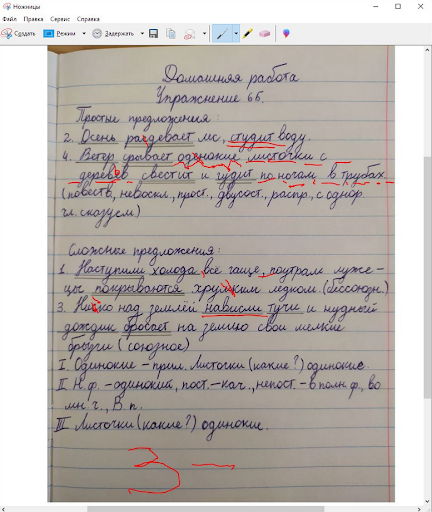 Ножницы
Файл Правка Сервис Справка
Создать Режим Задержать
Домашняя работа
Упражнение 66.
Простые предложения:
2. Осень раздевает лес, студит воду.
4. Ветер срывает одинокие листочки с
деревьев свестит и гудит по ночам в трубах
(повеств., невоскл., прост., двусост., распр., с однор.
гл. сказуем)
Сложные предложения:
1. Наступили холода все чаще, поутрам луже-
цы покрываются хрупким ледком. (бессоюзн.)
3. Низко над землёй нависли тучи и нудный
дождик бросает на землю свои мелкие
брызги (союзное)
I. Одинокие - прил. Листочки (какие?) одинокие.
II. Н.ф. - одинокий, пост. - кач., непост. - в полн. ф., во
мн. ч., В. п.
III Листочки (какие?) одинокие.
3 -